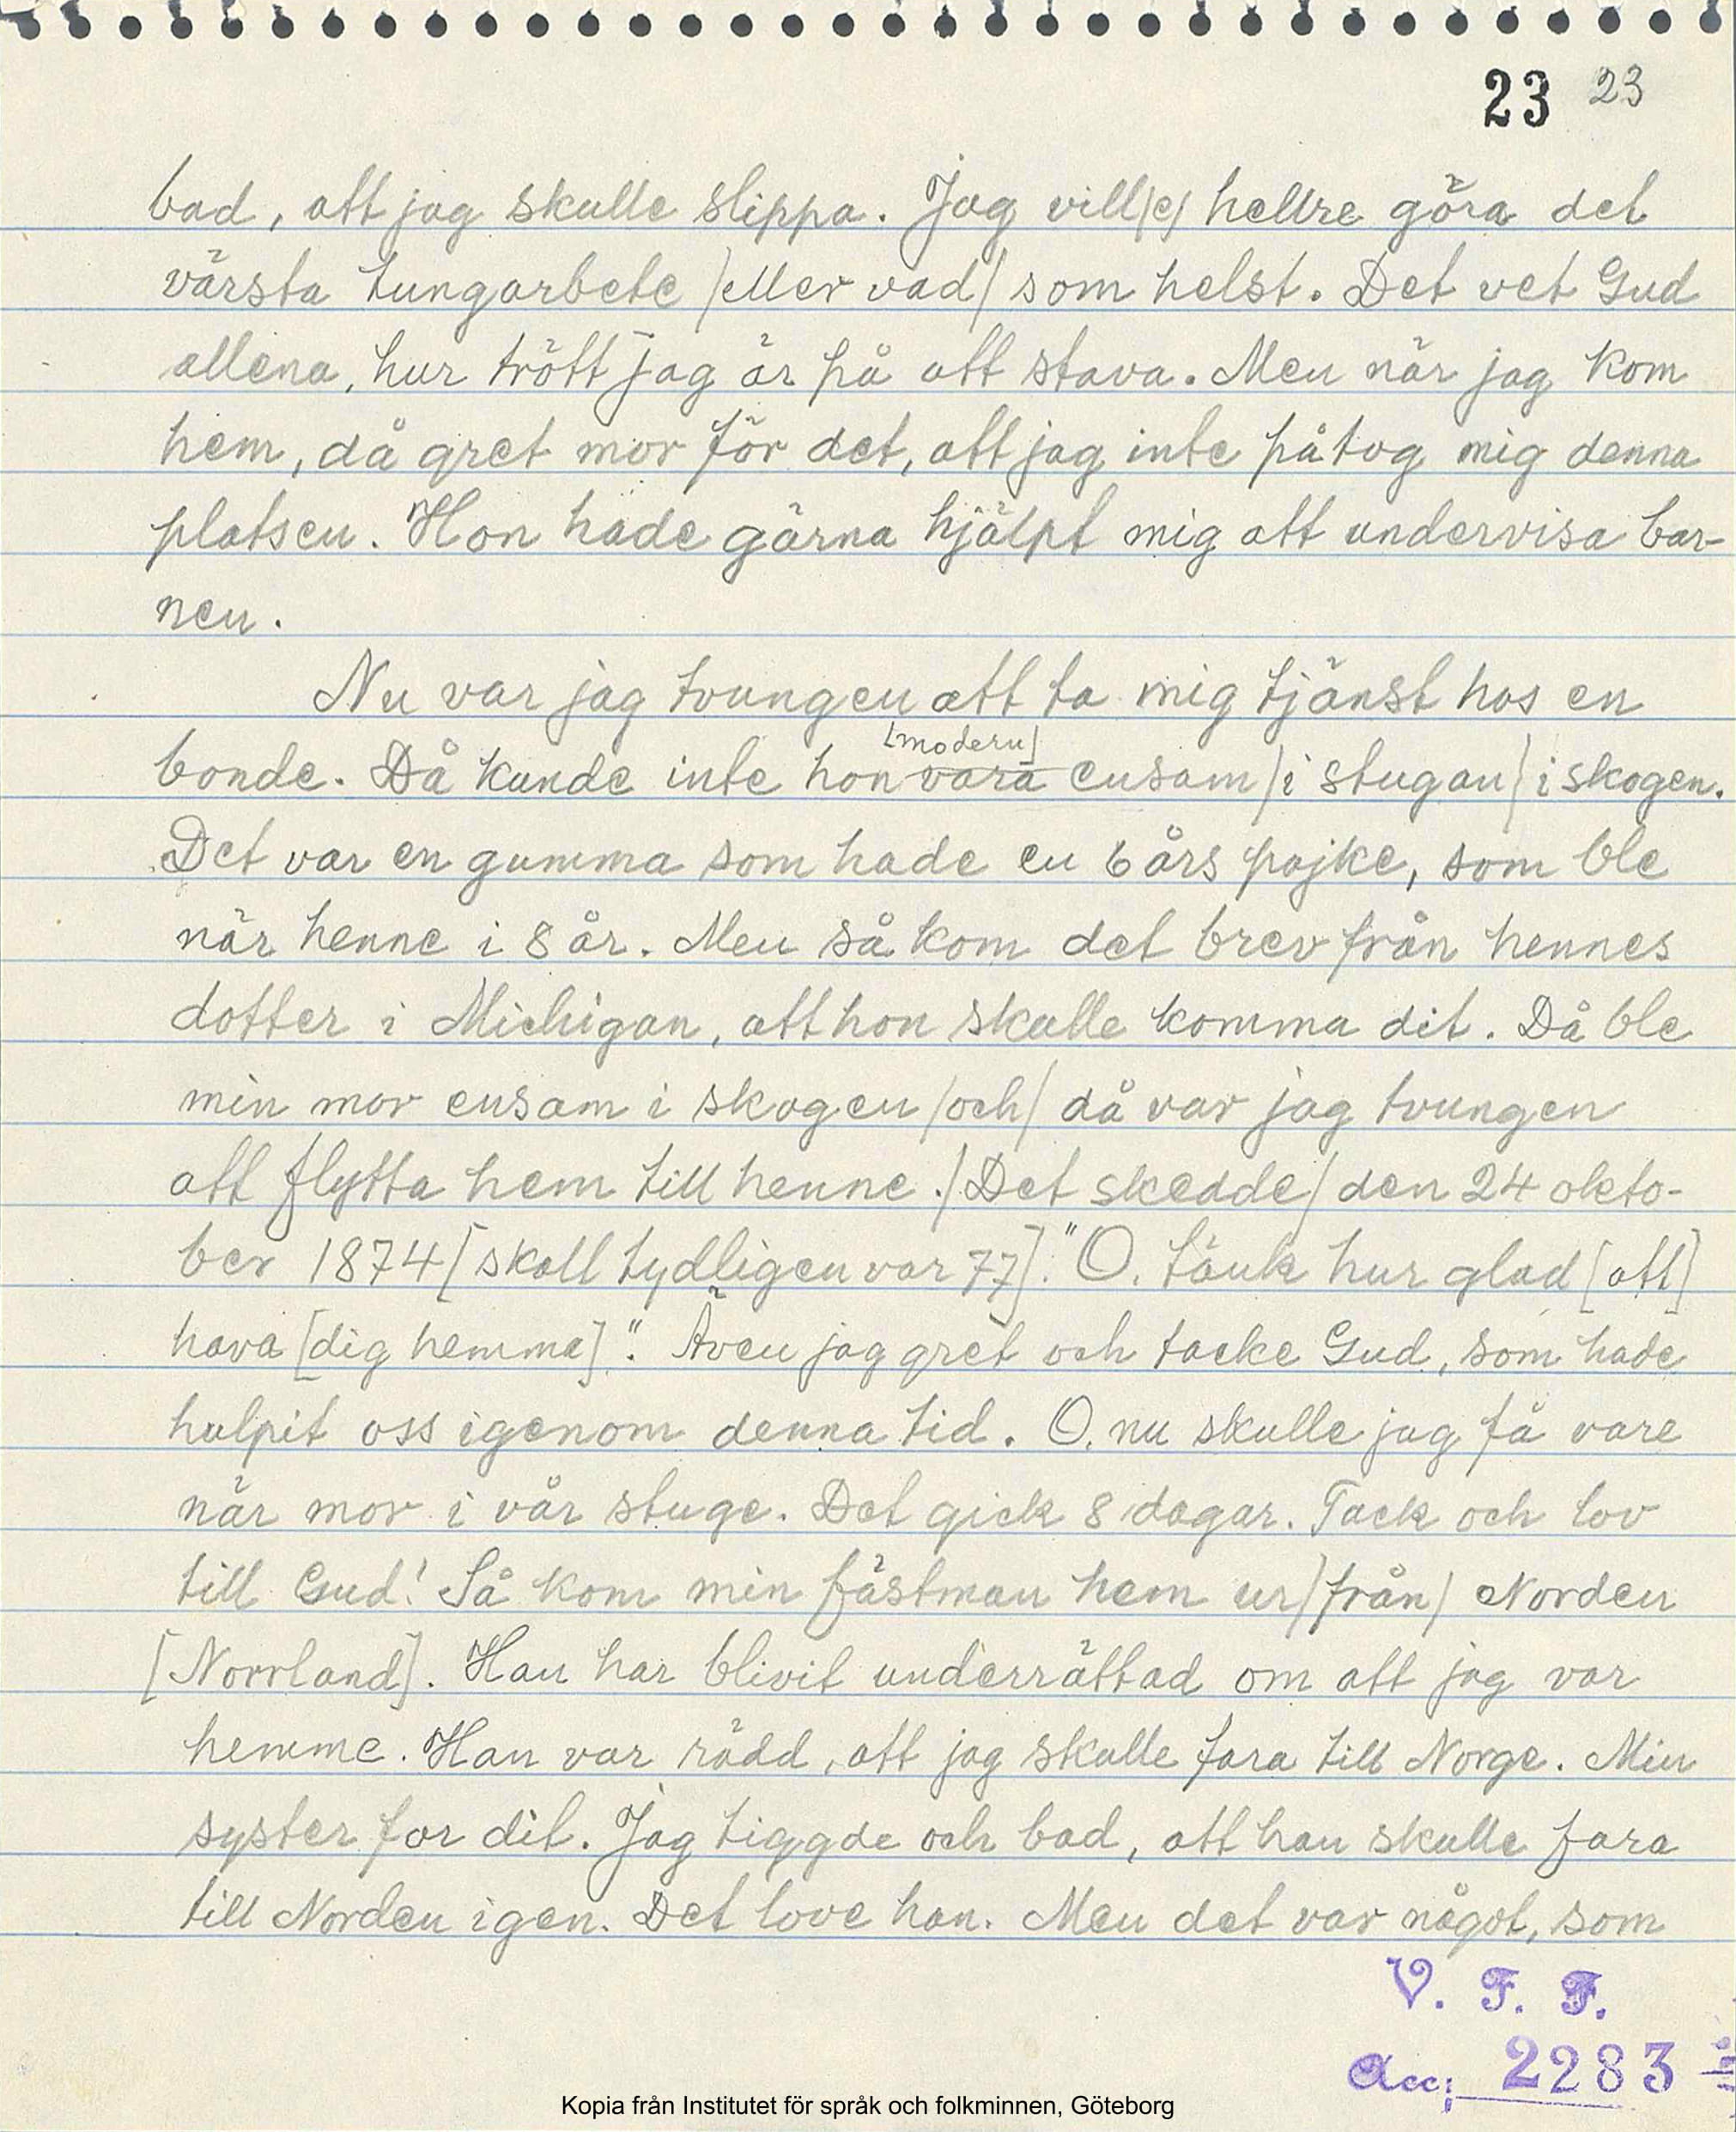 23 23
bad, att jag skulle slippa. Jag vill/e/ hellre göra det
värsta tungarbete /eller vad/ som helst. Det vet Gud
allena, hur trött jag är på att stava. Men när jag kom
hem, då gret mor för det, att jag inte påtog mig denna
platsen. Hon hade gärna hjälpt mig att undervisa bar-
nen.
Nu var jag tvungen att ta mig tjänst hos en
[modern]
bonde. Då kunde inte hon vara ensam /i stugan/ i skogen.
Det var en gumma som hade en 6 års pojke, som ble
när henne i 8 år. Men så kom det brev från hennes
dotter i Michigan, att hon skulle komma dit. Då ble
min mor ensam i skogen /och/ då var jag tvungen
att flytta hem till henne. /Det skedde/ den 24 okto-
ber 1874 [skall tydligen var 77]. "O, tänk hur glad [att]
hava [dig hemma]". Även jag gret och tacke Gud, som hade
hulpit oss igenom denna tid. O, nu skulle jag få vare
när mor i vår stuge. Det gick 8 dagar. Tack och lov
till Gud! Så kom min fästman hem ur /från/ Norden
[Norrland]. Han har blivit underrättad om att jag var
hemme. Han var rädd, att jag skulle fara till Norge. Min
syster for dit. Jag tiggde och bad, att han skulle fara
till Norden igen. Det love han. Men det var något, som
V. F. F.
Acc; 2283
Kopia från Institutet för språk och folkminnen, Göteborg